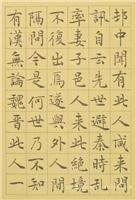 邨中聞有此人咸來問
訊自云先世避秦時亂
率妻子邑人來此絕境
不復出焉遂與外人間
隔問今是何世乃不知
有漢無論魏晉此人一